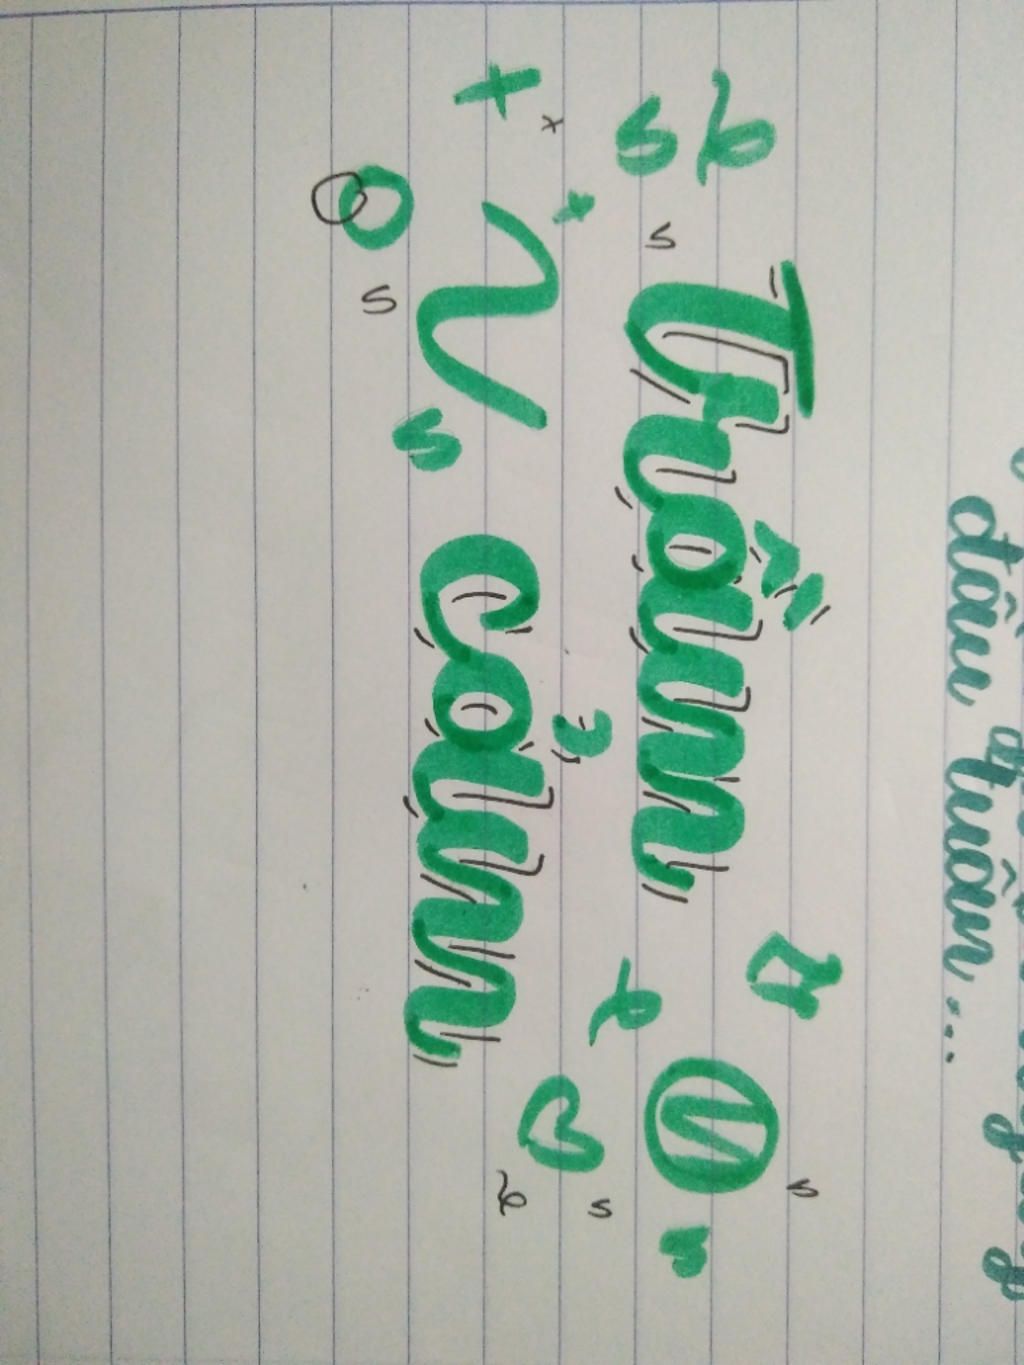 đầu tuần...
Trầm
cảm